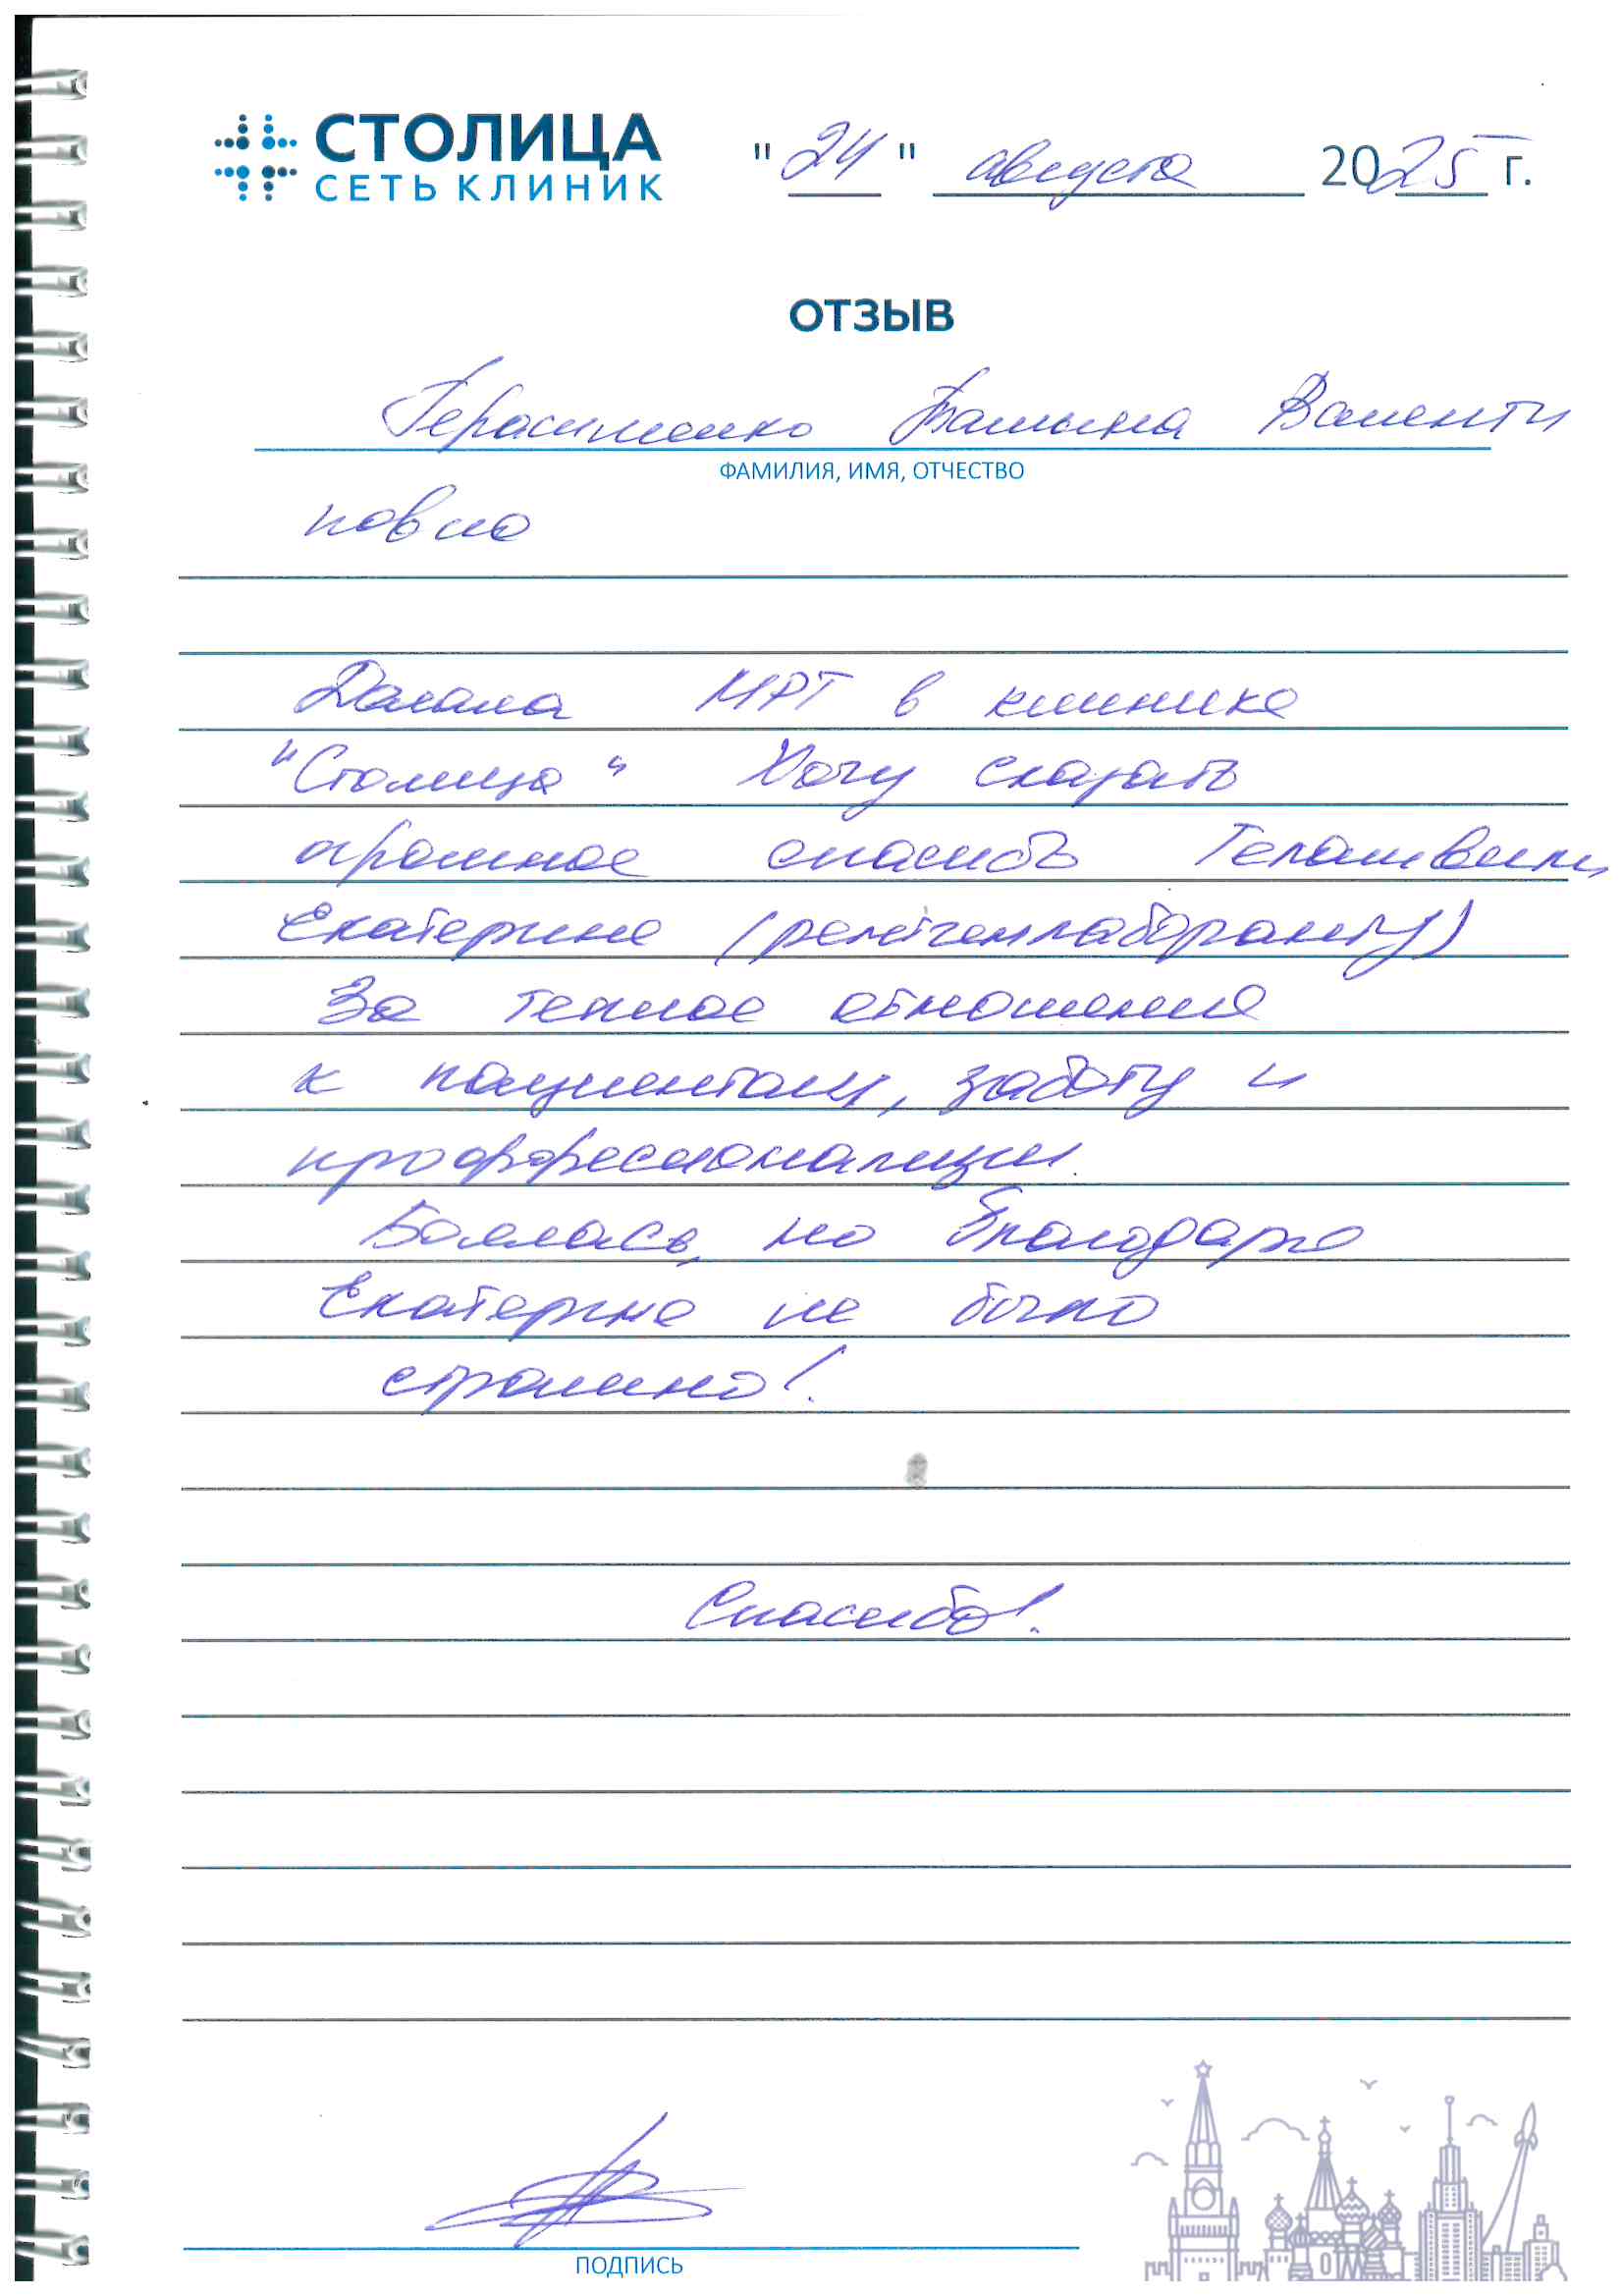 СТОЛИЦА
СЕТЬ КЛИНИК
"24" августа 2025 г.
ОТЗЫВ
Герасименко Татьяна Валенти
ФАМИЛИЯ, ИМЯ, ОТЧЕСТВО
новна
Делала МРТ в клинике
"Столица" Хочу сказать
огромное спасибо Телашвили
Екатерине (рентгенлаборанту)
За теплое отношение
к пациентам, заботу и
профессионализм.
Боялась, но благодаря
Екатерине не было
страшно!
Спасибо!
ПОДПИСЬ